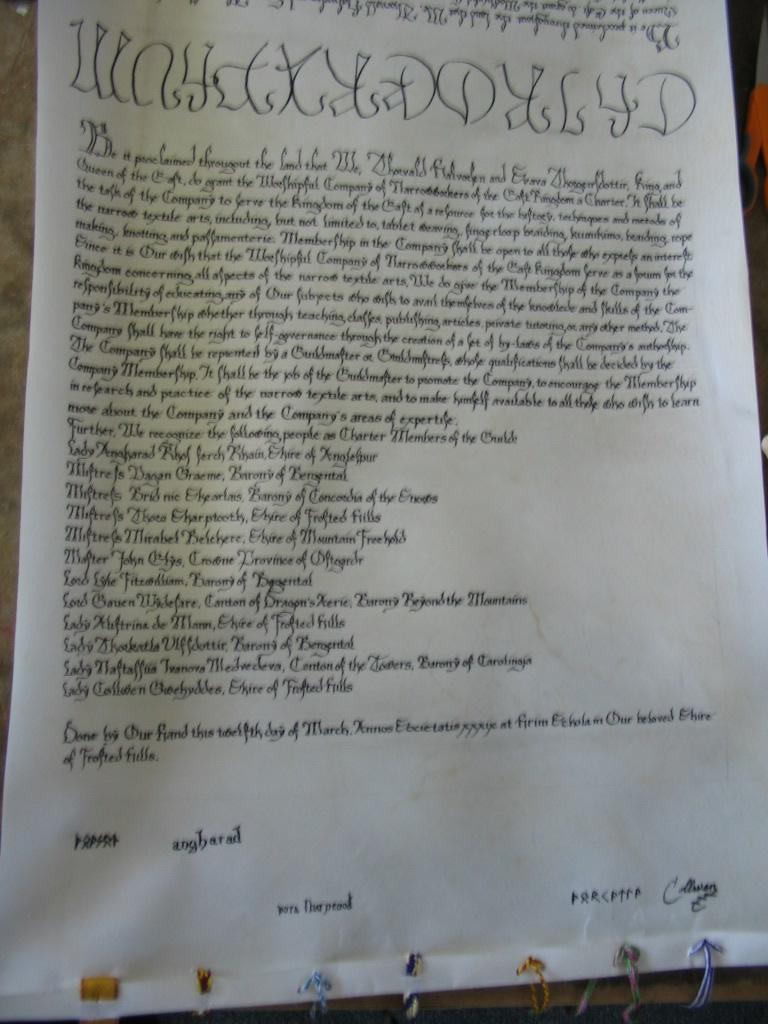 Be it proclaimed througout the land that We, Thorvald Halvorsen and Svava Thorgeirsdottir, King, and
Queen of the East, do grant the Worshipful Company of Narrowworkers of the East Kingdom a Charter. It shall be
the task of the Company to serve the Kingdom of the East as a resource for the history, techniques and metods of
the narrow textile arts, including, but not limited to, tablet weaving, fingerloop braiding, kumihimo, beading, rope
making, knotting, and passamenterie. Membership in the Company shall be open to all those who express an interest.
Since it is Our wish that the Worshipful Company of Narrowworkers of the East Kingdom serve as a forum for the
Kingdom concerning all aspects of the narrow textile arts, We do give the Membership of the Company the
responsibility of educating any of Our subjects who wish to avail themselves of the knowlede and skills of the Com-
pany's Membership whether through teaching classes, publishing articles, private tutoring, or any other method. The
Company shall have the right to self-governance through the creation of a set of by-laws of the Company's authorship.
The Company shall be represented by a Guildmaster or Guildmistress, whose qualifications shall be decided by the
Company Membership. It shall be the job of the Guildmaster to promote the Company, to encourage the Membership
in research and practice of the narrow textile arts, and to make himself available to all those who wish to learn
more about the Company and the Company's areas of expertise.
Further, We recognize the following people as Charter Members of the Guild:
Lady Angharad Rhos ferch Rhain, Shire of
Mistress Vagan Graeme, Barony of Bergental
Mistress Brid nic Shearlais, Barony of Concordia of the Snows
Mistress Thora Sharptooth, Shire of Frosted Hills
Mistress Mirabel Belchere, Shire of Mountain Freehold
Master John Elys, Crowne Province of Ostgardr
Lord Lyle Fitzwilliam, Barony of Bergental
Lord Gawen Wydefare, Canton of Dragon's Aerie, Barony Beyond the Mountains
Lady Alistrina de Mann, Shire of Frosted Hills
Lady Thorkatla Ulfsdottir, Barony of Bergental
Lady Nastassiia Ivanova Medvedeva, Canton of the Towers, Barony of Carolingia
Lady Collwen Gwehyddes, Shire of Frosted Hills
Done by Our Hand this twelfth day of March, Annos Societatis xxxix at Hirim Schola in Our beloved Shire
of Frosted Hills.
angharad
Collwen